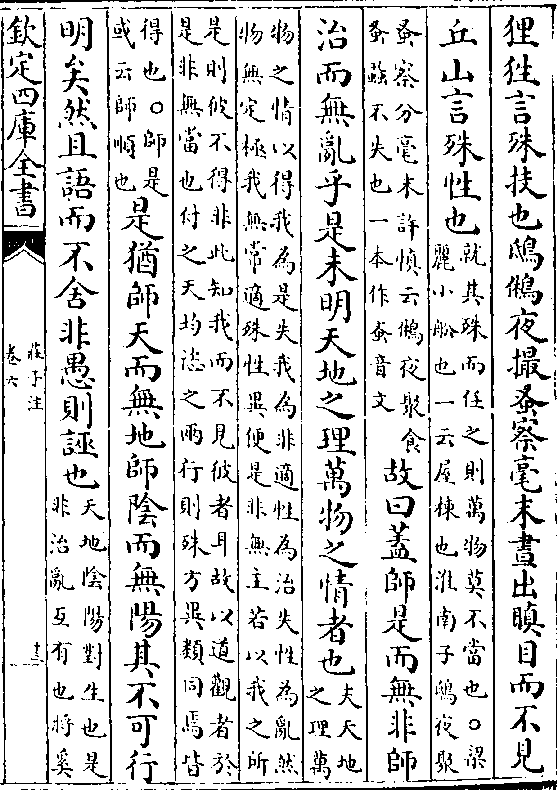 狸狌言殊技也鴟鵂夜撮蚤察毫末晝出瞋目而不見
丘山言殊性也
就其殊而任之則萬物莫不當也○梁
麗小船也一云屋棟也淮南子鴟夜聚
蚤察分毫末許慎云鵂夜聚食
蚤蝨不失也一本作蚤音文
故曰蓋師是而無非師
治而無亂乎是未明天地之理萬物之情者也
夫天地
之理萬
物之情以得我為是失我為非適性為治失性為亂然
物無定極我無常適殊性異便是非無主若以我之所
是則彼不得非此知我而不見彼者耳故以道觀者於
是非無當也付之天均恣之兩行則殊方異類同焉皆
得也○師是
或云師順也
是猶師天而無地師陰而無陽其不可行
明矣然且語而不舍非愚則誣也
天地陰陽對生也是
非治亂互有也將奚
欽定四庫全書
莊子注
卷六